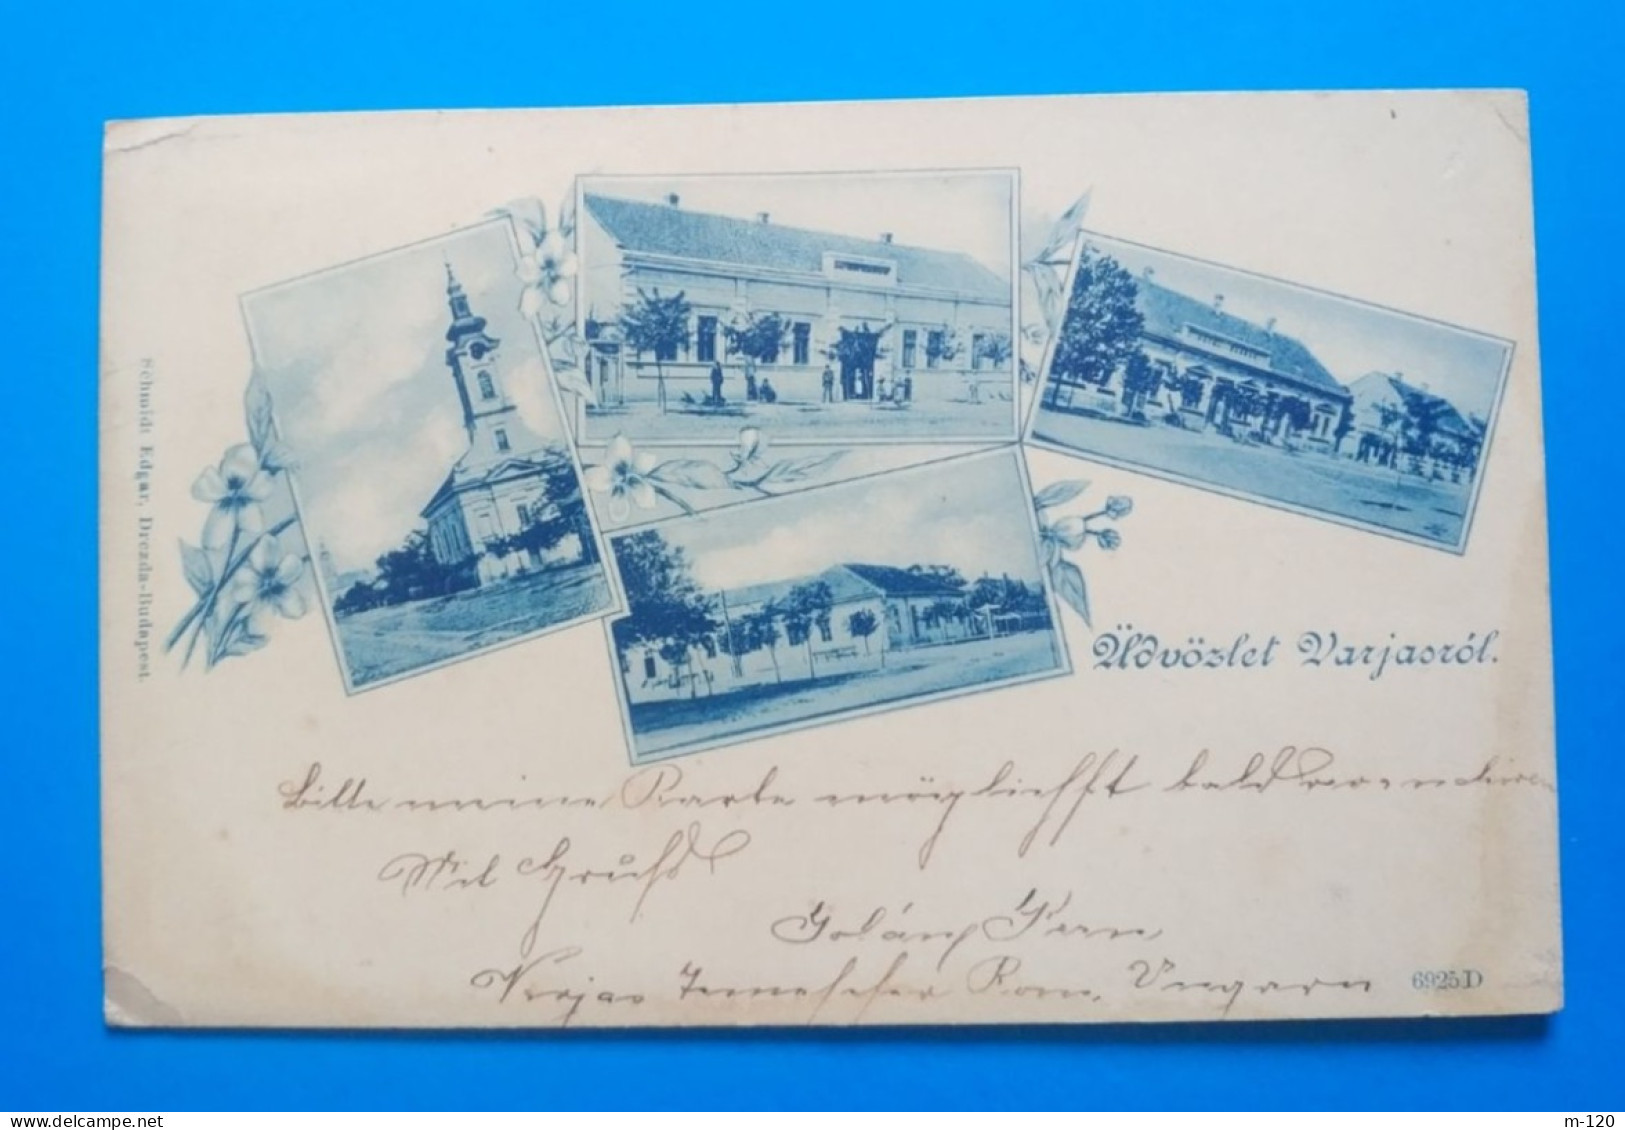 Schmidt Edgar, Drezda-Budapest.
Üdvözlet Varjasról.
Bitte meine Karte möglichst bald
Mit Gruß
Kern
Varjas Temescher Kom. Ungarn
6925 D
delcampe.net
m-120